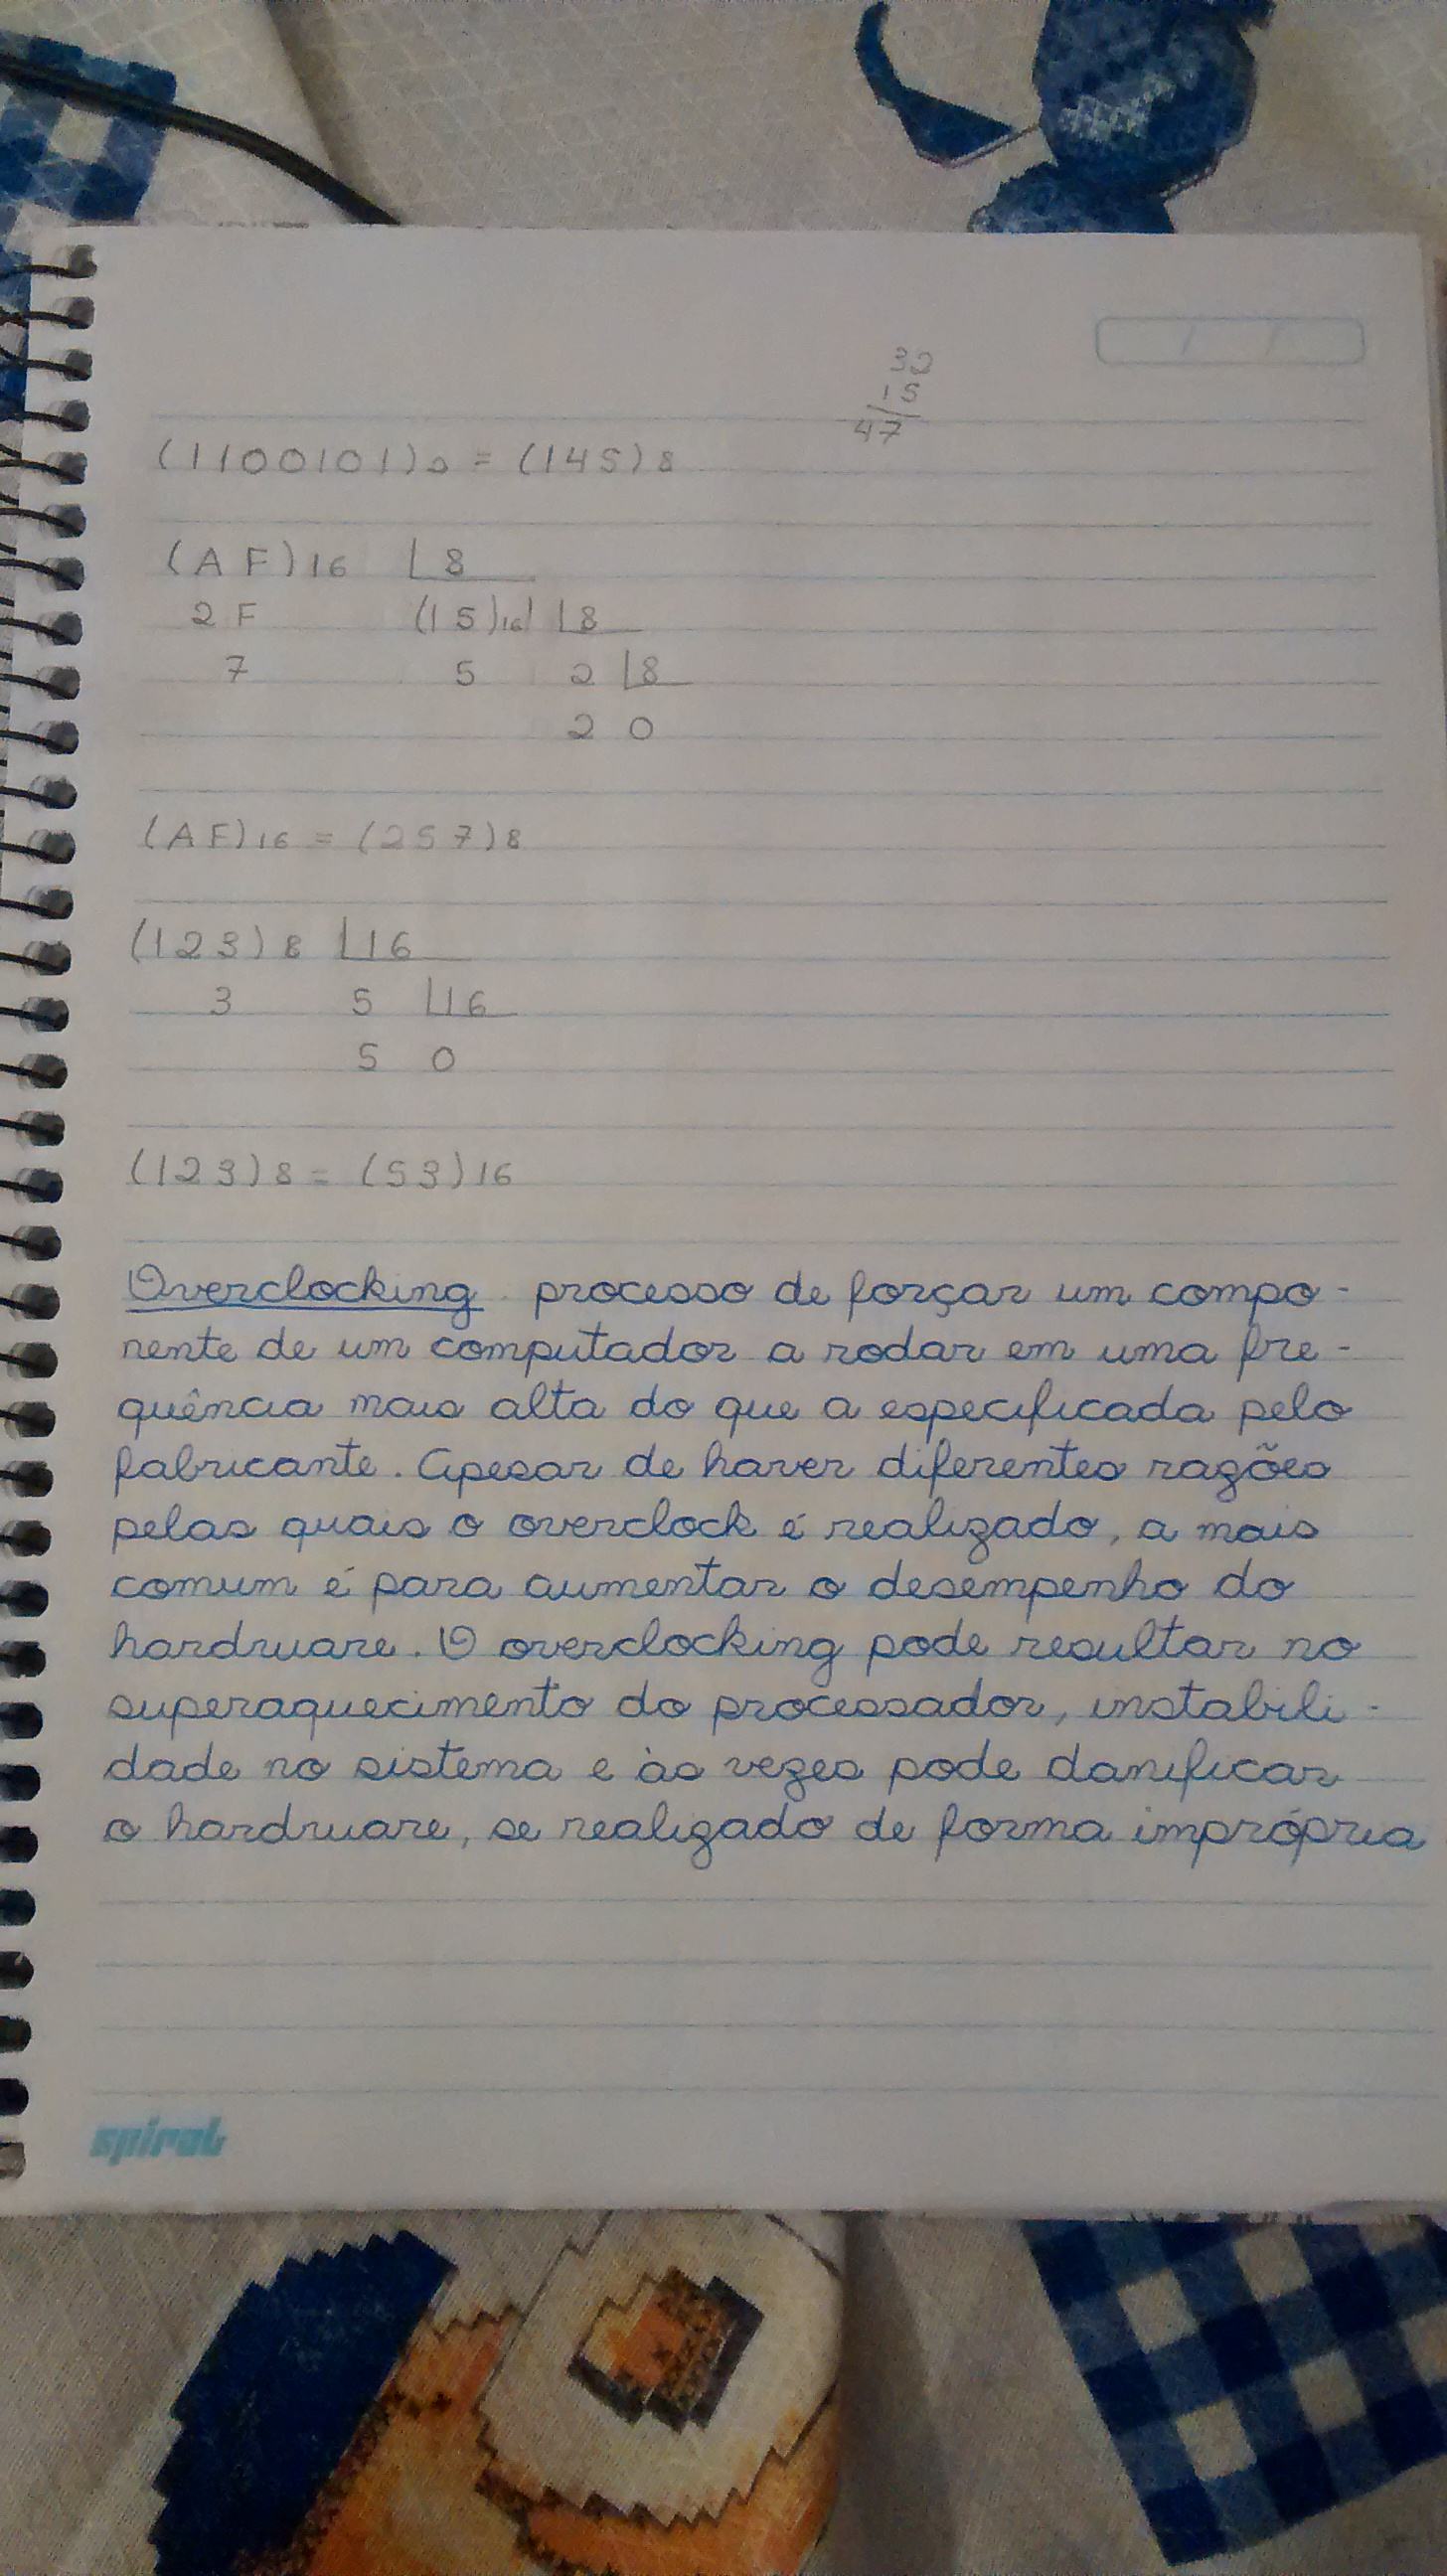 32
15
47
(1100101)2 = (145)8
(AF)16 8
2F (15)16 8
7 5 2 8
2 0
(AF)16 = (257)8
(123)8 16
3 5 16
5 0
(123)8 = (53)16
Overclocking processo de forçar um compo-
nente de um computador a rodar em uma fre-
quência mais alta do que a especificada pelo
fabricante. Apesar de haver diferentes razões
pelas quais o overclock é realizado, a mais
comum é para aumentar o desempenho do
hardware. O overclocking pode resultar no
superaquecimento do processador, instabili-
dade no sistema e às vezes pode danificar
o hardware, se realizado de forma imprópria
spiral